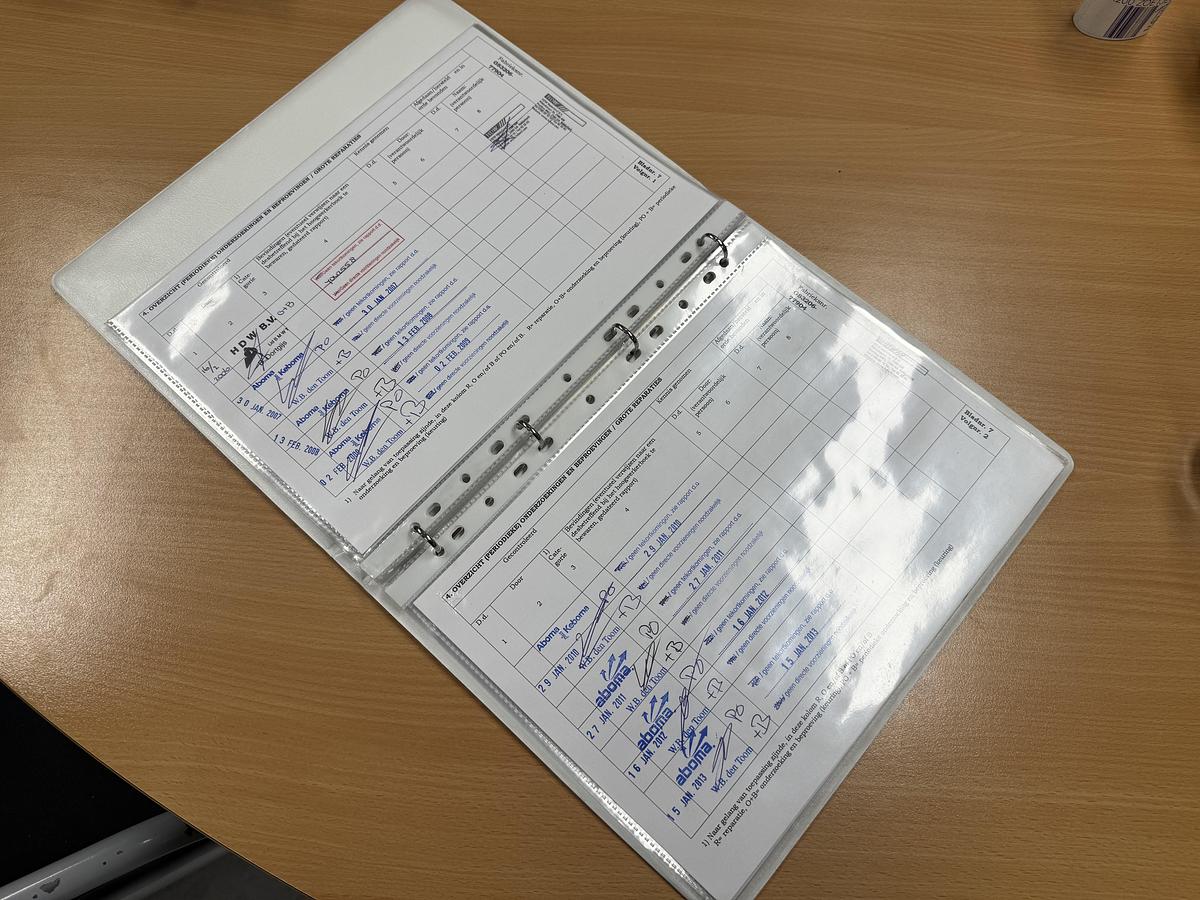 4. OVERZICHT (PERIODIEKE) ONDERZOEKINGEN EN BEPROEVINGEN / GROTE REPARATIES
Fabrieksnr.
GS3206-
77904
Gecontroleerd
Kennis genomen
Afgedaan/herstel
D.d.
1)
Cate-
gorie
Bevindingen (eventueel verwijzen naar een
desbetreffend bij het hoogwerkerboek te
bewaren, gedateerd rapport)
D.d.
Door:
(verantwoordelijk
persoon)
D.d.
Naam:
(verantwoordelijk
persoon)
1
2
3
4
5
6
7
8
2006
HDW B.V.
O+B
geen tekortkomingen, zie rapport d.d.
geen directe voorzieningen noodzakelijk
30 JAN. 2007
Aboma Keboma
W.B. den Toom
PO
+B
/ geen tekortkomingen, zie rapport d.d.
30 JAN 2007
/ geen directe voorzieningen noodzakelijk
13 FEB. 2008
Aboma Keboma
W.B. den Toom
PO
+B
/ geen tekortkomingen, zie rapport d.d.
13 FEB. 2008
/ geen directe voorzieningen noodzakelijk
02 FEB. 2009
Aboma Keboma
W.B. den Toom
PO
+B
/ geen tekortkomingen, zie rapport d.d.
02 FEB. 2009
/ geen directe voorzieningen noodzakelijk
1) Naar gelang van toepassing zijnde, in deze kolom R, O en/of B of PO en/of B.
R= reparatie, O+B= onderzoeking en beproeving (keuring), PO + B= periodieke
onderzoeking en beproeving (keuring)
Bladnr. 7
Volgnr. 1
4. OVERZICHT (PERIODIEKE) ONDERZOEKINGEN EN BEPROEVINGEN / GROTE REPARATIES
Fabrieksnr.
GS3206-
77904
Gecontroleerd
Kennis genomen
D.d.
Door
1)
Cate-
gorie
Bevindingen (eventueel verwijzen naar een
desbetreffend bij het hoogwerkerboek te
bewaren, gedateerd rapport)
D.d.
Door:
(verantwoordelijk
persoon)
D.d.
Naam:
(verantwoordelijk
persoon)
1
2
3
4
5
6
7
8
29 JAN. 2010
Aboma Keboma
W.B. den Toom
PO
+B
/ geen tekortkomingen, zie rapport d.d.
29 JAN. 2010
/ geen directe voorzieningen noodzakelijk
27 JAN. 2011
aboma
W.B. den Toom
PO
+B
/ geen tekortkomingen, zie rapport d.d.
27 JAN. 2011
/ geen directe voorzieningen noodzakelijk
16 JAN. 2012
aboma
W.B. den Toom
PO
+B
/ geen tekortkomingen, zie rapport d.d.
16 JAN. 2012
/ geen directe voorzieningen noodzakelijk
15 JAN. 2013
aboma
W.B. den Toom
PO
+B
/ geen tekortkomingen, zie rapport d.d.
15 JAN. 2013
/ geen directe voorzieningen noodzakelijk
1) Naar gelang van toepassing zijnde, in deze kolom R, O en/of B of PO en/of B.
R= reparatie, O+B= onderzoeking en beproeving (keuring), PO + B= periodieke onderzoeking en beproeving (keuring)
Bladnr. 7
Volgnr. 2